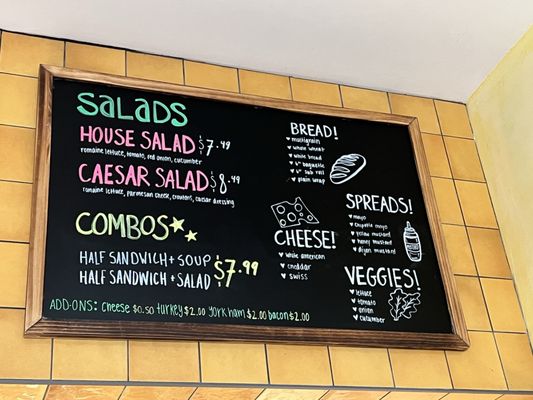 SALADS
HOUSE SALAD $7.49
romaine lettuce, tomato, red onion, cucumber
CAESAR SALAD $8.49
romaine lettuce, parmesan cheese, croutons, caesar dressing
COMBOS
HALF SANDWICH + SOUP
HALF SANDWICH + SALAD $7.99
ADD-ONS: Cheese $0.50 turkey $2.00 york ham $2.00 bacon $2.00
BREAD!
multigrain
whole wheat
white bread
6" baguette
6" sub roll
plain wrap
CHEESE!
white american
cheddar
swiss
SPREADS!
mayo
chipotle mayo
yellow mustard
honey mustard
dijon mustard
VEGGIES!
lettuce
tomato
onion
cucumber